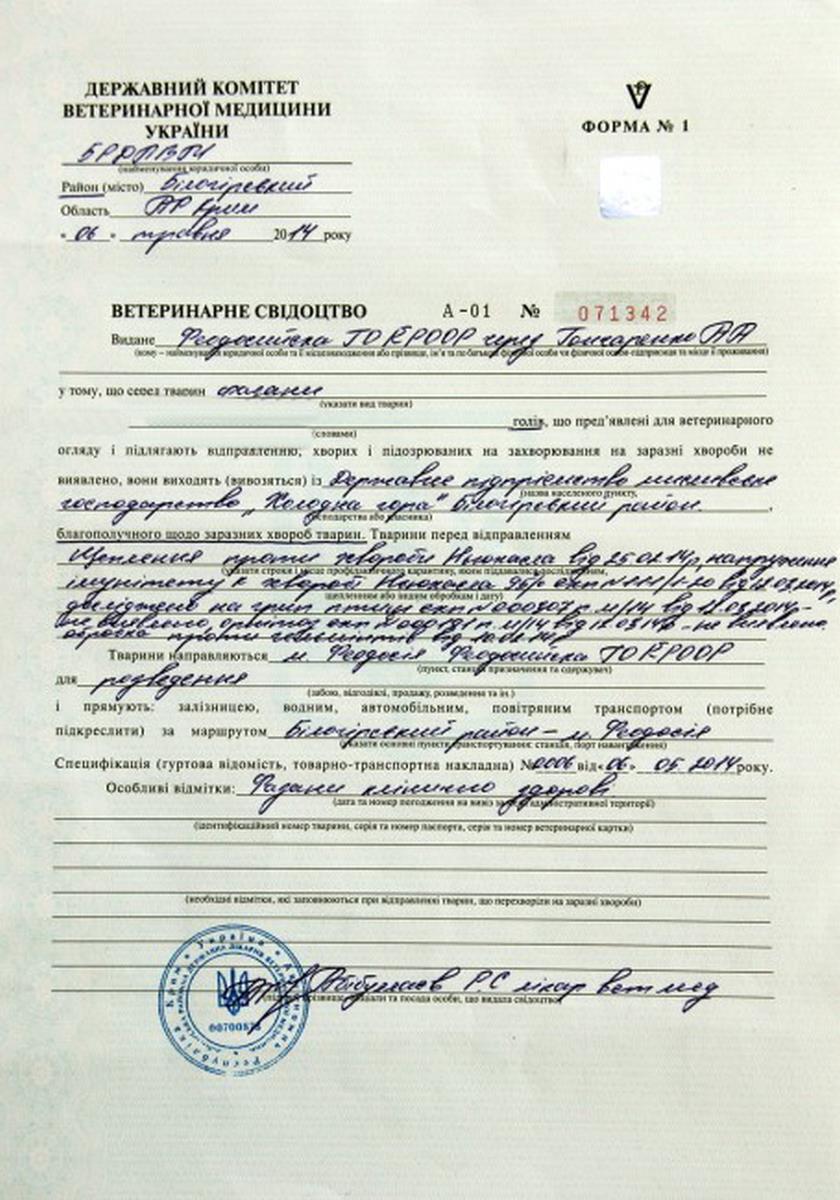 ДЕРЖАВНИЙ КОМІТЕТ
ВЕТЕРИНАРНОЇ МЕДИЦИНИ
УКРАЇНИ
ФОРМА № 1
БРДЛВМ
(найменування юридичної особи)
Район (місто) Білогірський
Область АР Крим
« 06 » травня 2014 року
ВЕТЕРИНАРНЕ СВІДОЦТВО А-01 № 071342
Видане Феодосійська ГО КРООР через Гончаренко АА
(кому – найменування юридичної особи та її місцезнаходження або прізвище, ім'я та по батькові фізичної особи чи фізичної особи-підприємця та місце її проживання)
у тому, що серед тварин фазани
(указати вид тварин)
голів, що пред'явлені для ветеринарного
(словами)
огляду і підлягають відправленню, хворих і підозрюваних на захворювання на заразні хвороби не
виявлено, вони виходять (вивозяться) із Державне підприємство мисливське
(назва населеного пункту,
господарство „Холодна гора" Білогірський район.
господарства або власника)
благополучного щодо заразних хвороб тварин. Тварини перед відправленням
Щеплення проти хвороби Ньюкасла від 25.02.14р, напруження
(указати строки і місце профілактичного карантину, яким піддавались дослідженням,
імунітету к хворобі Ньюкасла від 12.03.2014р,
щепленню або іншим обробкам і дату)
досліджено на грип птиці експ №000707 п.м/14 від 12.03.2014р -
не виявлено, орнітоз експ №000171 п.м/14 від 12.03.14р - не виявлено.
обробка проти гельмінтів від 10.02.14р
Тварини направляються м. Феодосія Феодосійська ГО КРООР
(пункт, станція призначення та одержувач)
для розведення
(забою, відгодівлі, продажу, розведення та ін.)
і прямують: залізницею, водним, автомобільним, повітряним транспортом (потрібне
підкреслити) за маршрутом Білогірський район – м. Феодосія
(указати основні пункти транспортування: станція, порт навантаження)
Специфікація (гуртова відомість, товарно-транспортна накладна) №0006 від «06» 05. 2014 року.
Особливі відмітки: Фазани клінично здорові
(дата та номер погодження на вивіз за межі адміністративної території)
(ідентифікаційний номер тварини, серія та номер паспорта, серія та номер ветеринарної картки)
(необхідні відмітки, які заповнюються при відправленні тварин, що перехворіли на заразні хвороби)
Абібулаєв Р.С лікар вет мед
(підпис, прізвище, ініціали та посада особи, що видала свідоцтво)
Україна Автономна Республіка Крим